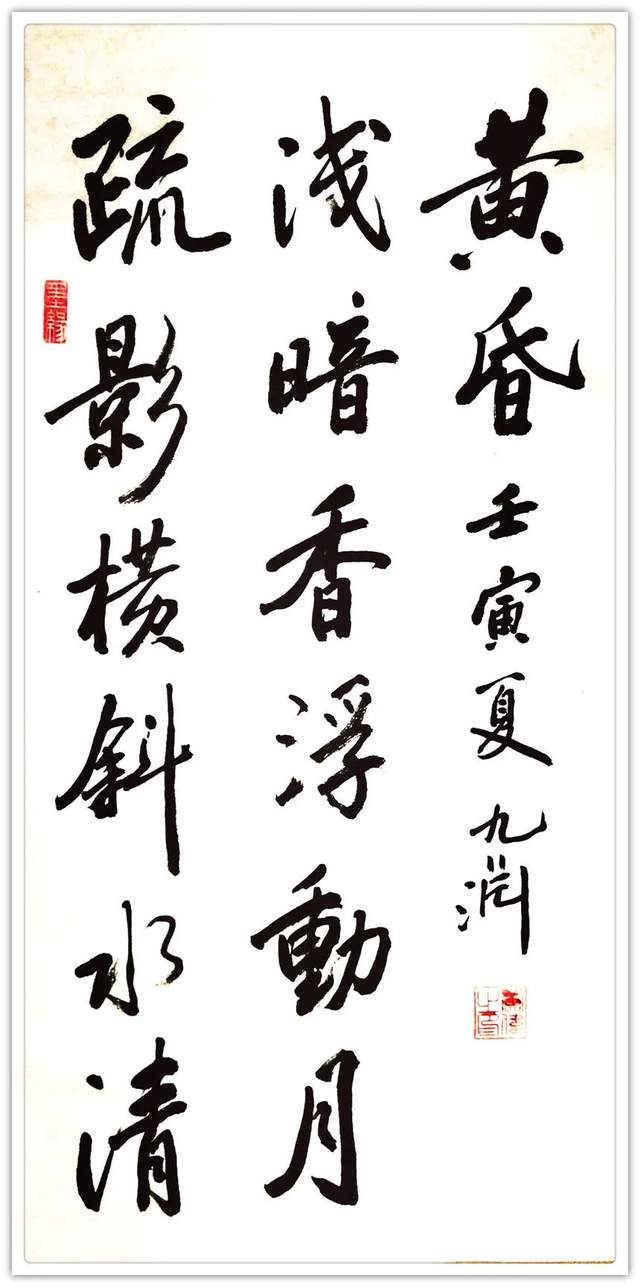 疏影横斜水清
浅暗香浮動月
黄昏 壬寅夏 九渊
墨緣